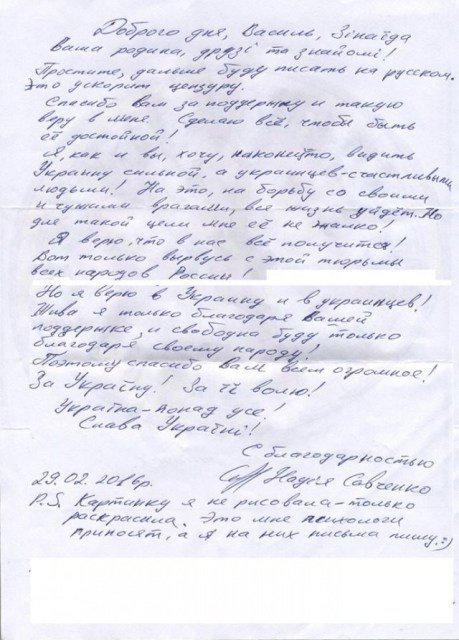 Доброго дня, Василь, Зінаїда
Ваша родина, друзі та знайомі!
Простите, дальше буду писать на русском.
Это ускорит цензуру.
Спасибо вам за поддержку и такую
веру в меня. Сделаю всё, чтобы быть
её достойной!
Я, как и вы, хочу, наконец-то, видить
Украину сильной, а украинцев-счастливыми
людьми! На это, на борьбу со своими
и чужими врагами, вся жизнь уйдёт. Но
для такой цели мне её не жалко!
Я верю, что в нас всё получится!
Вот только вырвусь с этой тюрьмы
всех народов России!
Но я верю в Украину и в украинцев!
Жива я только благодаря Вашей
поддержке, и свободна буду только
благодаря своему народу!
Поэтому спасибо Вам всем огромное!
За Україну! За її волю!
Україна-понад усе!
Слава Україні!
С благодарностью
Надія Савченко
29.02.2016р.
P.S. Картинку я не рисовала-только
раскрасила. Это мне психологи
приносят, а я на них письма пишу. :)